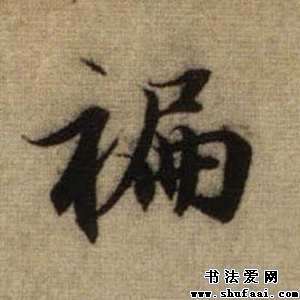 褊
书法爱网
www.shufaai.com